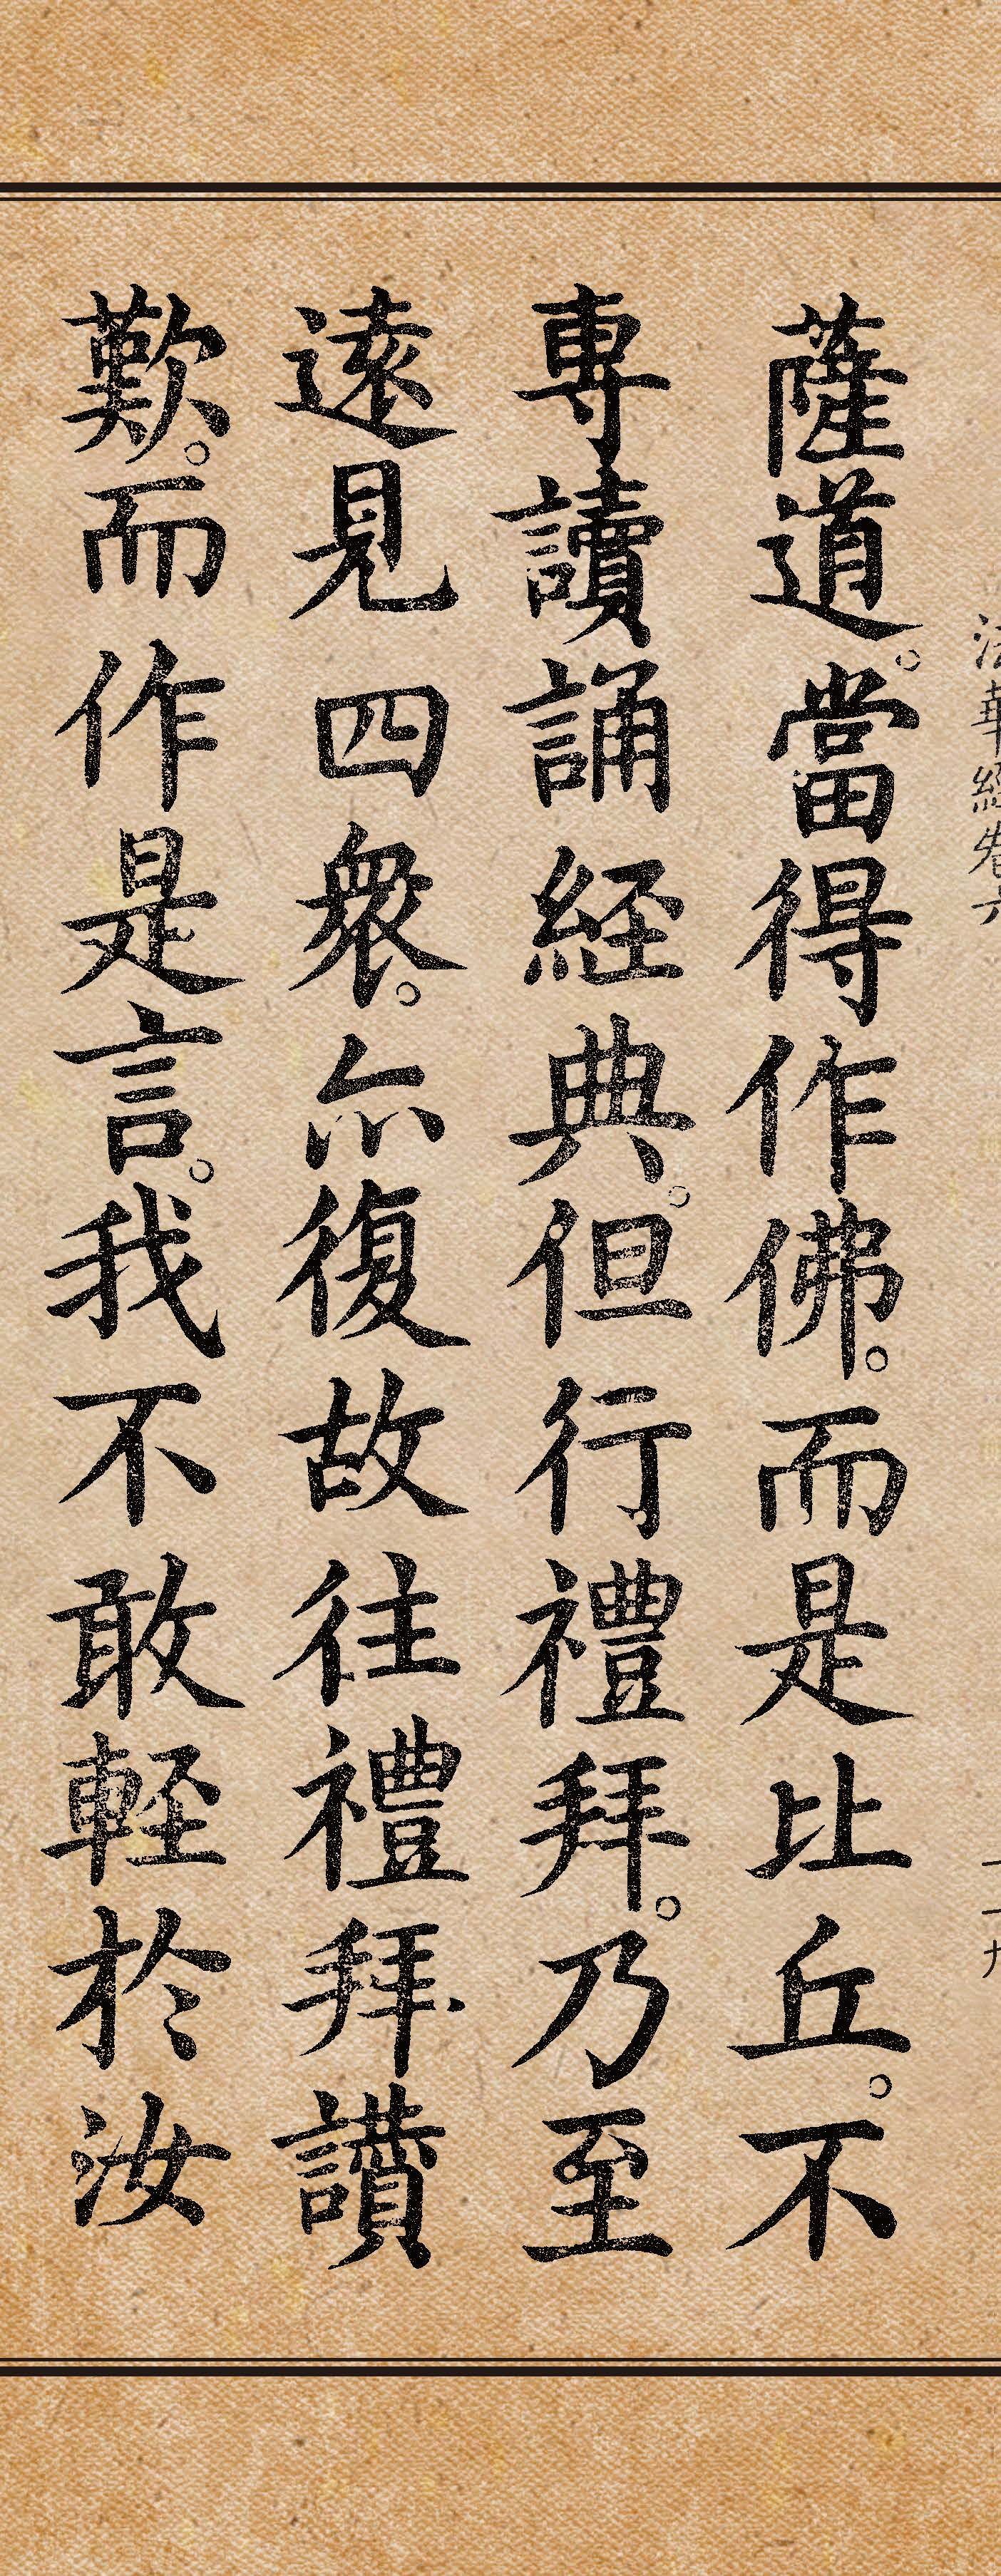 法華經卷六
薩道。當得作佛。而是比丘。不
専讀誦経典。但行禮拜。乃至
遠見四衆。亦復故往禮拜讃
歎。而作是言。我不敢輕於汝